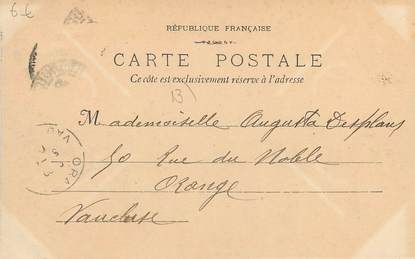 6-6
RÉPUBLIQUE FRANÇAISE
CARTE POSTALE
Ce côté est exclusivement réservé à l'adresse
13)
Mademoiselle Augusta Desplans
50 Rue du Noble
Orange
Vaucluse